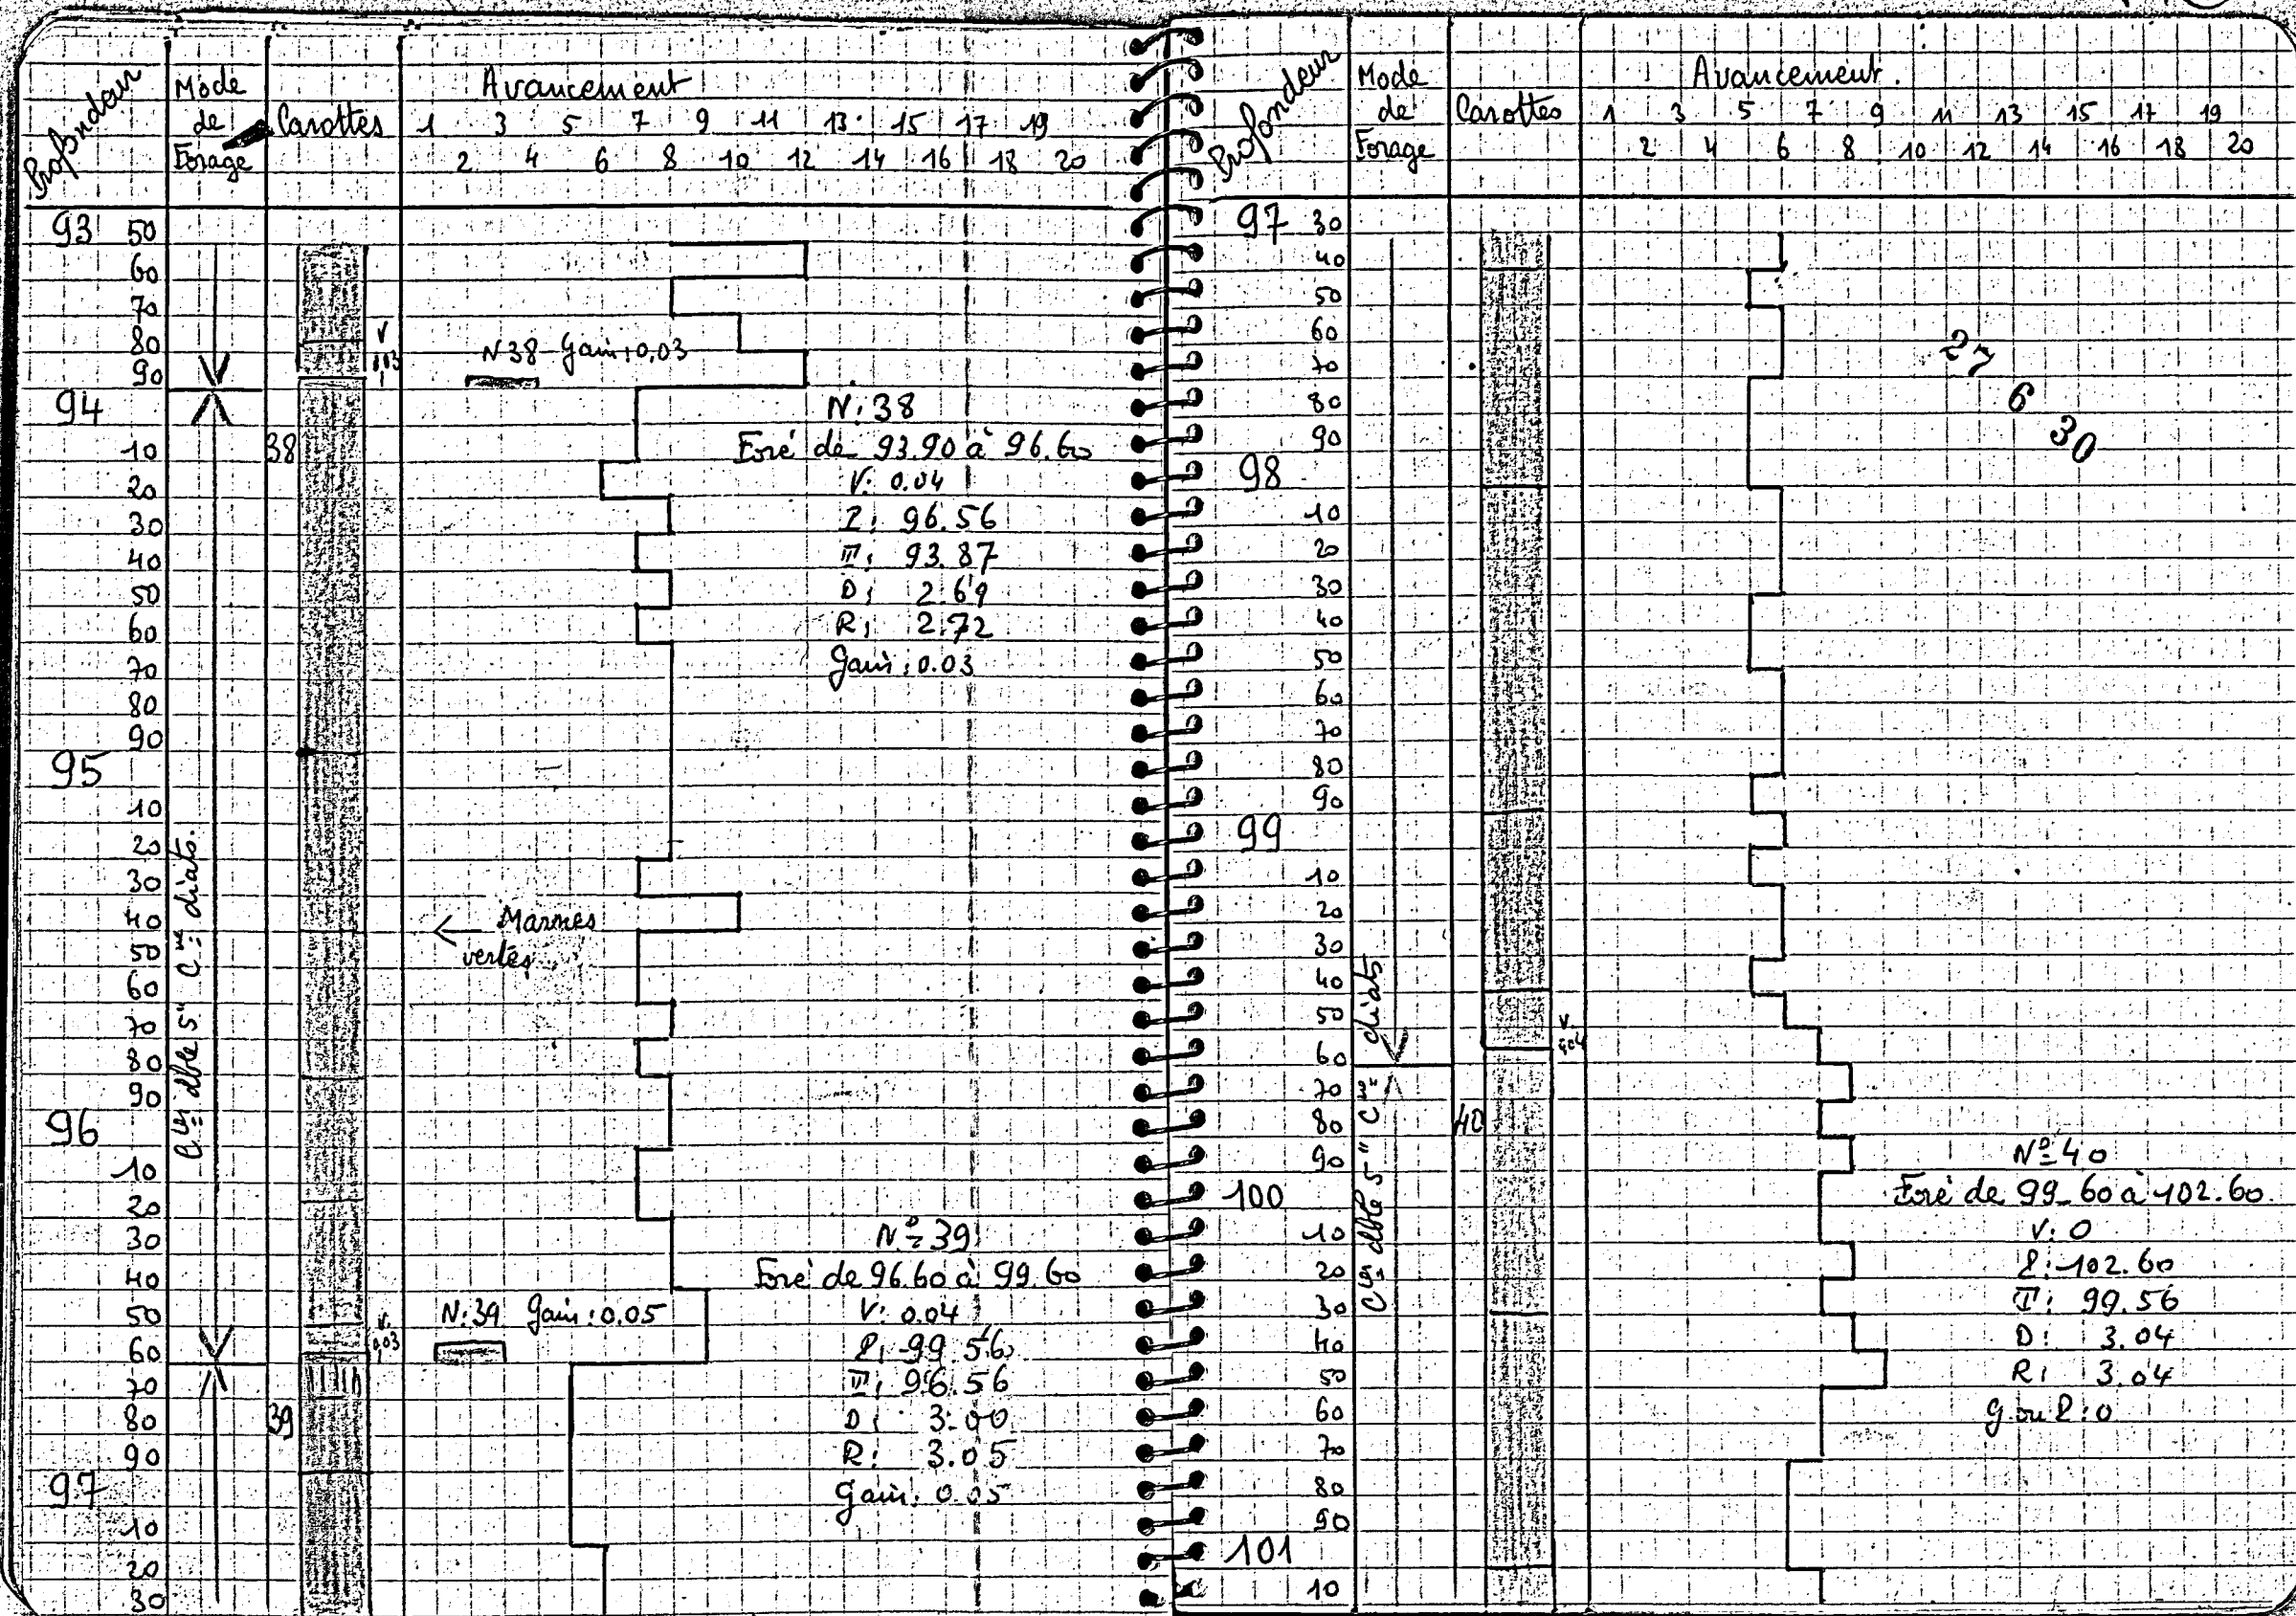 Profondeur
Mode
de
Forage
Carottes
Avancement
1 3 5 7 9 11 13 15 17 19
2 4 6 8 10 12 14 16 18 20
93 50
60
70
80
90
94
10
20
30
40
50
60
70
80
90
95
10
20
30
40
50
60
70
80
90
96
10
20
30
40
50
60
70
80
90
97
10
20
30
dble 5" diats.
38
39
V
0,03
N38 Gain: 0,03
N: 38
Foré de 93.90 à 96.60
V: 0.04
I: 96.56
III: 93.87
D: 2.69
R: 2.72
Gain: 0.03
← Marnes
vertes
N:39 Gain: 0.05
V.
0,03
Nº 39
Foré de 96.60 à 99.60
V: 0.04
99.56
96.56
D: 3.00
R: 3.05
Gain: 0.05
Profondeur
Mode
de
Forage
Carottes
Avancement.
1 3 5 7 9 11 13 15 17 19
2 4 6 8 10 12 14 16 18 20
97 30
40
50
60
70
80
90
98
10
20
30
40
50
60
70
80
90
99
10
20
30
40
50
60
70
80
90
100
10
20
30
40
50
60
70
80
90
101
10
diats
dble 5"
40
27
6
30
Nº 40
Foré de 99.60 à 102.60
V: 0
102.60
99.56
D: 3.04
R: 3.04